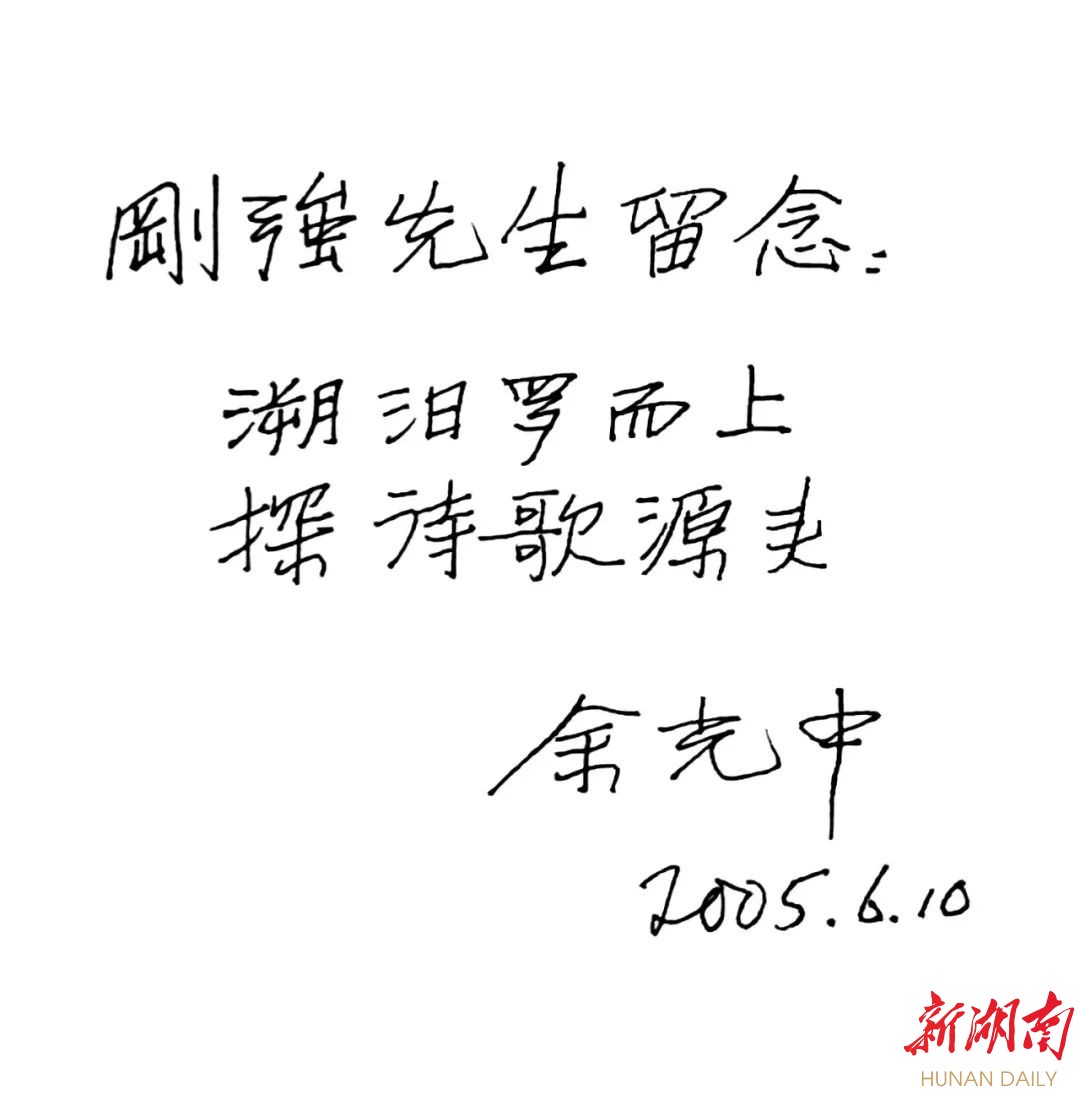 剛強先生留念：
溯汨罗而上
探诗歌源头
余光中
2005.6.10
新湖南
HUNAN DAILY